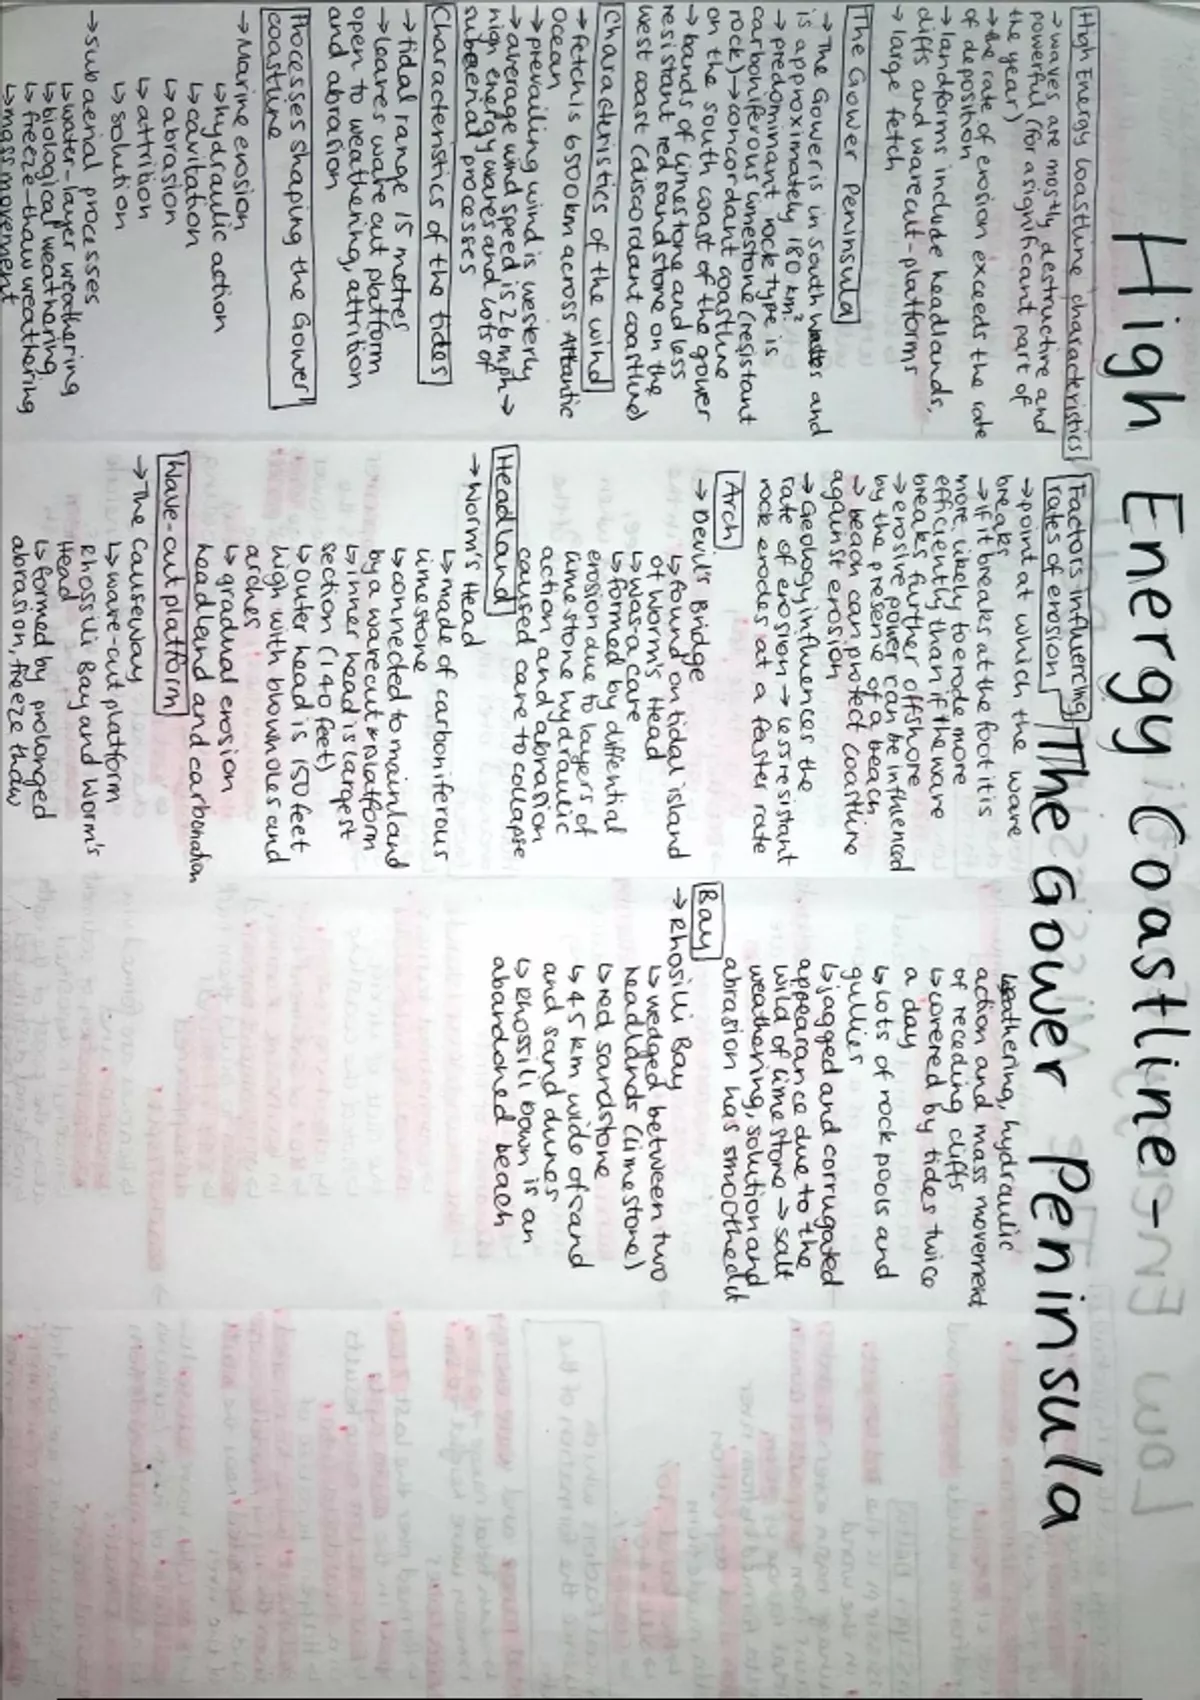 High Energy Coastline-
The Gower Peninsula
High Energy Coastline characteristics
→ waves are mostly destructive and
powerful (for a significant part of
the year)
→ the rate of erosion exceeds the rate
of deposition
→ landforms include headlands,
cliffs and wavecut-platforms
→ large fetch
The Gower Peninsula
→ The Gower is in South Wales and
is approximately 180 km².
→ predominant rock type is
carboniferous limestone (resistant
rock) → concordant coastline
on the south coast of the gower
→ bands of limestone and less
resistant red sandstone on the
west coast (discordant coastline)
Characteristics of the wind
→ fetch is 6500km across Atlantic
Ocean
→ prevailing wind is westerly
→ average wind speed is 26mph →
high energy waves and lots of
subaerial processes
Characteristics of the tides
→ tidal range 15 metres
→ leaves wave cut platform
open to weathering, attrition
and abrasion
Processes shaping the Gower
coastline
→ Marine erosion
↳ hydraulic action
↳ cavitation
↳ abrasion
↳ attrition
↳ solution
→ sub aerial processes
↳ water-layer weathering
↳ biological weathering
↳ freeze-thaw weathering
↳ mass movement
Factors influencing
rates of erosion
→ point at which the wave
breaks
→ if it breaks at the foot it is
more likely to erode more
efficiently than if the wave
breaks further offshore
→ erosive power can be influenced
by the presene of a beach
→ beach can protect coastline
against erosion
→ Geology influences the
rate of erosion → less resistant
rock erodes at a faster rate
Arch
→ Devil's Bridge
↳ found on tidal island
of Worm's Head
↳ was a cave
↳ formed by diffential
erosion due to layers of
limestone hydraulic
action and abrasion
caused cave to collapse
Headland
→ Worm's Head
↳ made of carboniferous
limestone
↳ connected to mainland
by a wavecut platform
↳ inner head is largest
section (140 feet)
↳ outer head is 150 feet
high with blowholes and
arches
↳ gradual erosion
headland and carbonation
Wave-cut platform
→ The Causeway
↳ wave-cut platform
Rhossili Bay and Worm's
Head
↳ formed by prolonged
abrasion, freeze thaw
weathering, hydraulic
action and mass movement
of receding cliffs
↳ covered by tides twice
a day
↳ Lots of rock pools and
gullies
↳ jagged and corrugated
appearance due to the
wild of limestone → salt
weathering, solution and
abrasion has smoothed it
Bay
→ Rhosilli Bay
↳ wedged between two
headlands (limestone)
↳ red sandstone
↳ 45 km wide of sand
and sand dunes
↳ Rhossili bown is an
abandoned beach